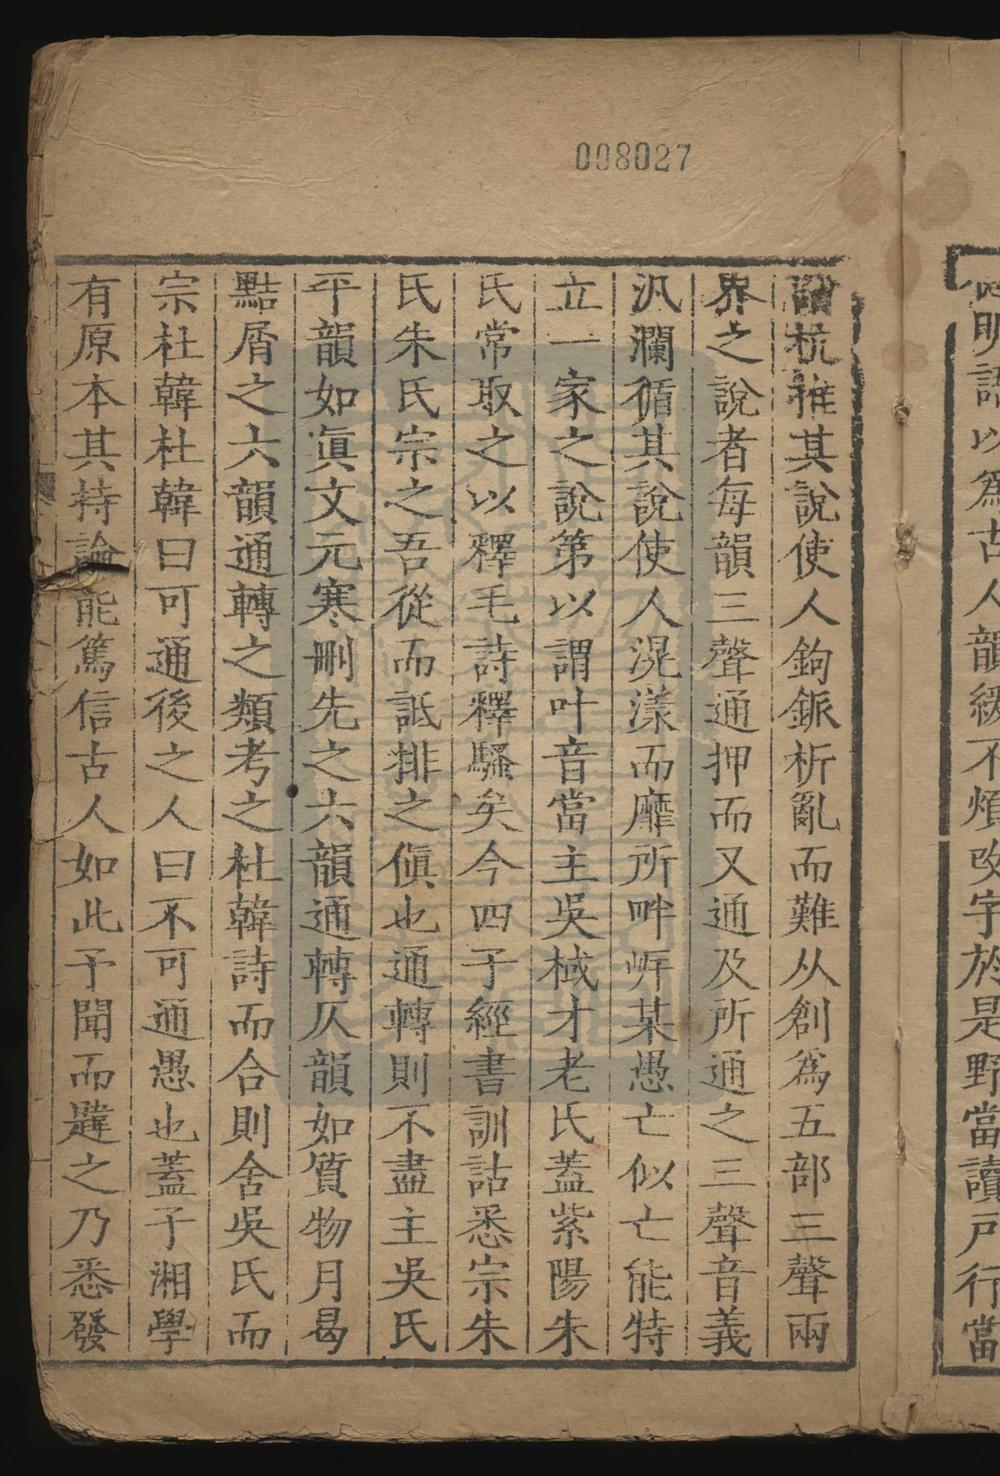 008027
明語以爲古人韻緩不煩改字於是野當讀戸行當
杭推其說使人鉤鈲析亂而難从創爲五部三聲兩
界之說者每韻三聲通押而又通及所通之三聲音義
汎瀾循其說使人滉漾而靡所畔岸某愚亡似亡能特
立一家之說第以謂叶音當主吳棫才老氏蓋紫陽朱
氏常取之以釋毛詩釋騷矣今四子經書訓詁悉宗朱
氏朱氏宗之吾從而詆排之傎也通轉則不盡主吳氏
平韻如眞文元寒刪先之六韻通轉仄韻如質物月曷
黠屑之六韻通轉之類考之杜韓詩而合則舍吳氏而
宗杜韓杜韓曰可通後之人曰不可通愚也蓋予湘學
有原本其持論能篤信古人如此予聞而韙之乃悉發